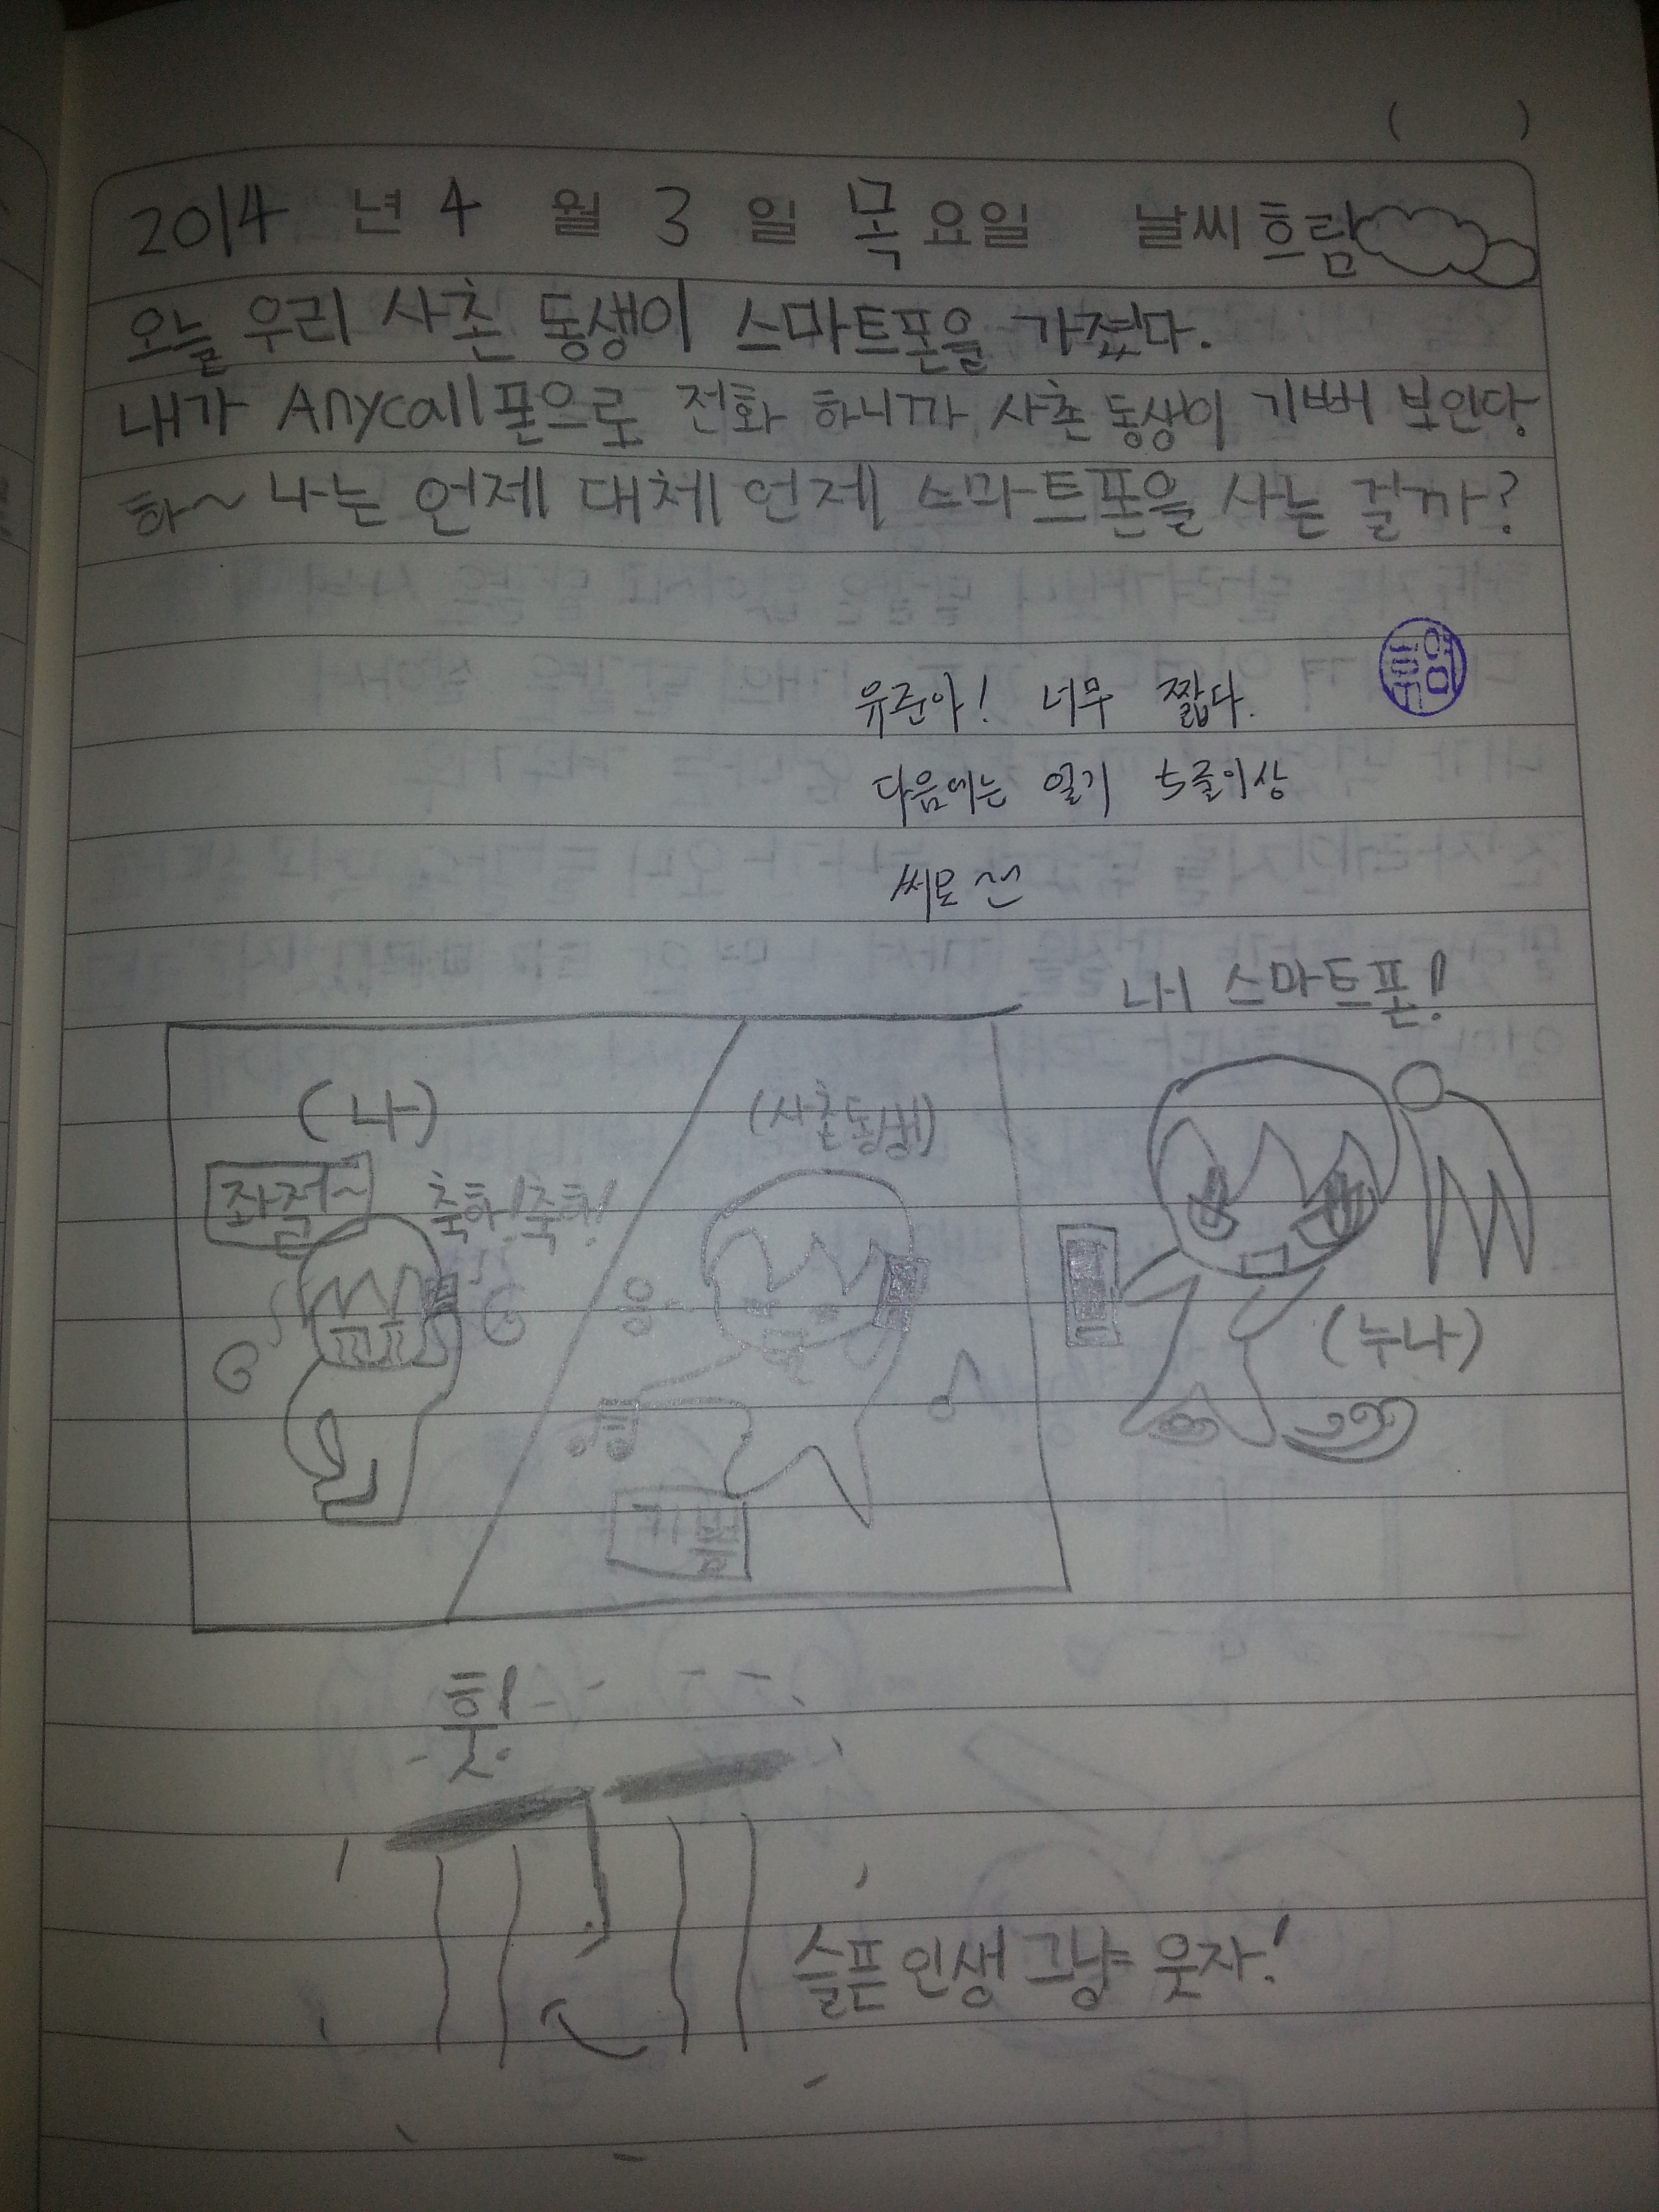 (        )
2014 년 4 월 3 일 목요일 날씨 흐림
오늘 우리 사촌 동생이 스마트폰을 가졌다.
내가 Anycall폰으로 전화 하니까 사촌 동생이 기뻐 보인당
하~ 나는 언제 대체 언제 스마트폰을 사는 걸까?
유준아! 너무 짧다.
다음에는 일기 5줄이상
써보렴
내 스마트폰!
(나)
(사촌동생)
좌절~
축하!축하!
응~
(누나)
기쁨
훗!
슬픈 인생 그냥 웃자!